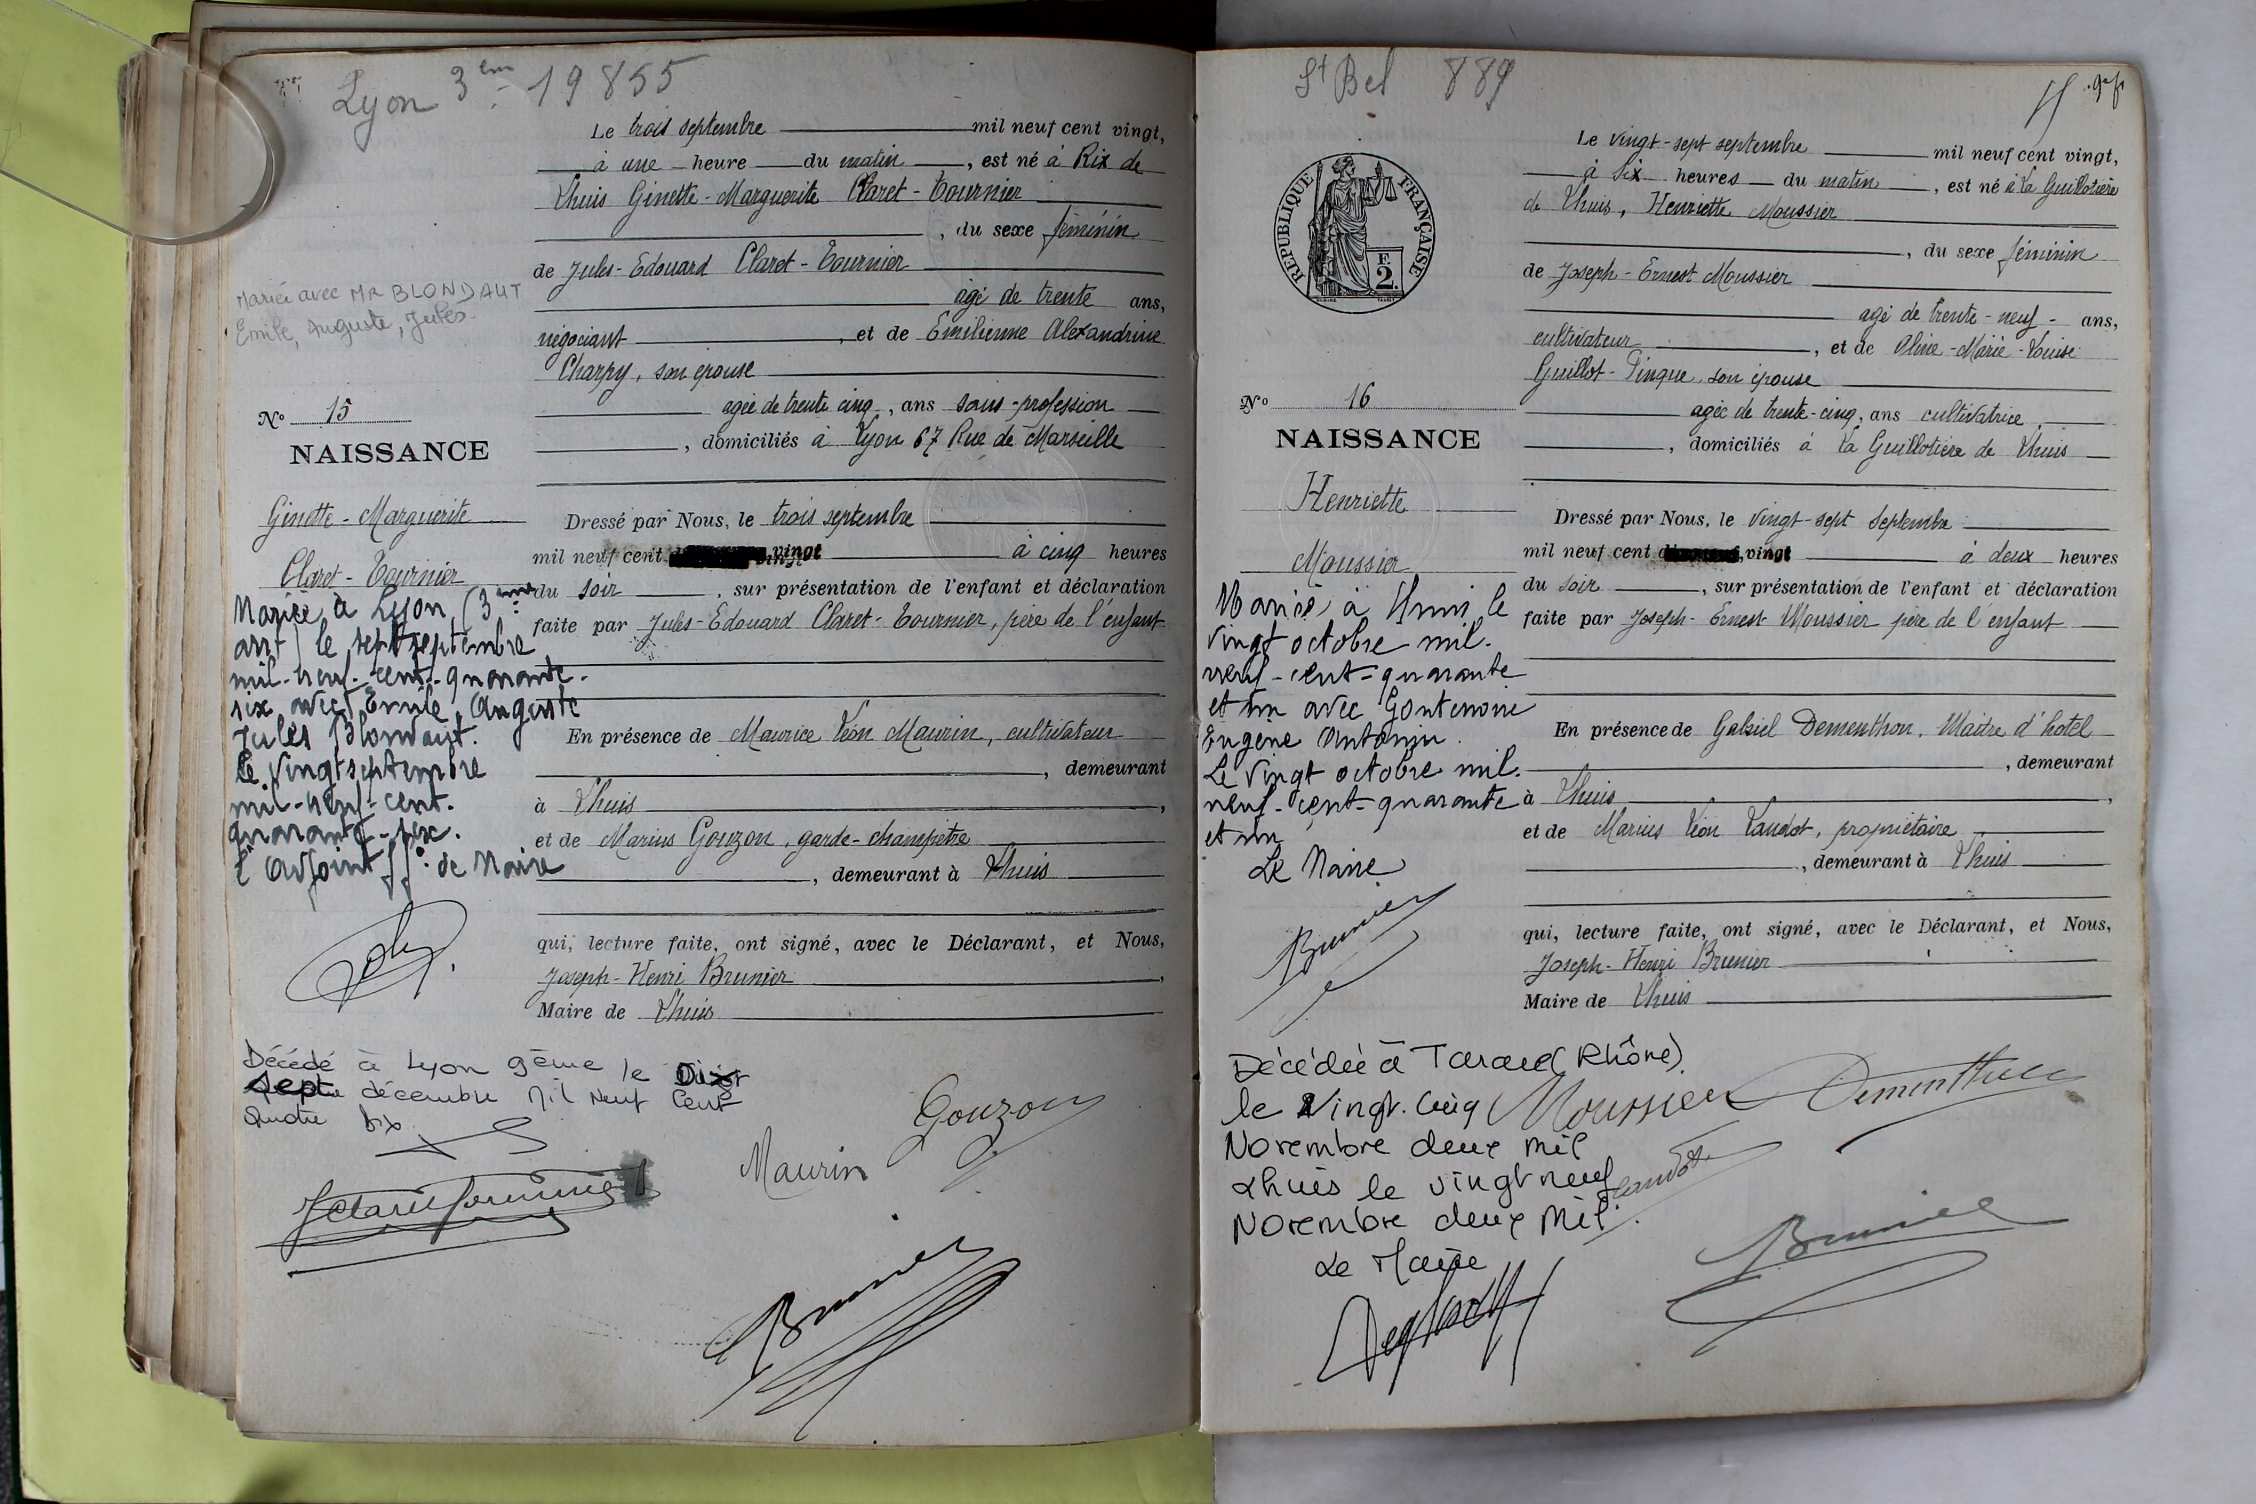 Lyon 3em 19855
Le trois septembre mil neuf cent vingt,
à une heure du matin, est né à Rix de
Lhuis Ginette-Marguerite Claret-Tournier
, du sexe féminin
de Jules-Edouard Claret-Tournier
agé de trente ans,
négociant, et de Emilienne Alexandrine
Charpy, son épouse
agée de trente cinq, ans sans-profession
, domiciliés à Lyon 67 Rue de Marseille
Mariée avec MR BLONDAUT
Emile, Auguste, Jules
No 15
NAISSANCE
Ginette-Marguerite
Claret-Tournier
Mariée à Lyon (3ème
arrt) le sept septembre
mil-neuf-cent-quarante-
six avec Emile Auguste
Jules Blondaut.
Le vingt septembre
mil-neuf-cent-
quarante-six.
L'adjoint ff. de Maire
Dressé par Nous, le trois septembre
mil neuf cent vingt à cinq heures
du soir, sur présentation de l'enfant et déclaration
faite par Jules-Edouard Claret-Tournier, père de l'enfant
En présence de Maurice Léon Maurin, cultivateur
, demeurant
à Lhuis,
et de Marius Gouzon, garde-champêtre
, demeurant à Lhuis
qui, lecture faite, ont signé, avec le Déclarant, et Nous,
Joseph-Henri Brunier,
Maire de Lhuis
Décédé à Lyon 9ème le
décembre Mil Neuf Cent
Quatre dix
Gouzon
Maurin
Brunier
St Bel 889
REPUBLIQUE FRANÇAISE
F.
2.
Le vingt-sept septembre mil neuf cent vingt,
à six heures du matin, est né à La Guillotière
de Lhuis, Henriette Moussier
, du sexe féminin
de Joseph-Ernest Moussier
agé de trente-neuf- ans,
cultivateur, et de Aline-Marie-Louise
Guillot-Pingue, son épouse
agée de trente-cinq, ans cultivatrice
, domiciliés à La Guillotière de Lhuis
No 16
NAISSANCE
Henriette
Moussier
Mariée à Lhuis le
vingt octobre mil-
neuf-cent-quarante
et un avec Gontenoire
Eugène Antonin.
Le vingt octobre mil-
neuf-cent-quarante
et un
Le Maire
Brunier
Dressé par Nous, le vingt-sept septembre
mil neuf cent vingt à deux heures
du soir, sur présentation de l'enfant et déclaration
faite par Joseph-Ernest Moussier père de l'enfant
En présence de Gabriel Dementhon, Maître d'hotel
, demeurant
à Lhuis,
et de Marius Léon Laudot, propriétaire
, demeurant à Lhuis
qui, lecture faite, ont signé, avec le Déclarant, et Nous,
Joseph-Henri Brunier
Maire de Lhuis
Décédée à Tarare (Rhône)
le Vingt-Cinq
Novembre deux mil
Lhuis le vingt neuf
Novembre deux mil.
Le Maire
Moussier Dementhon
Laudot
Brunier